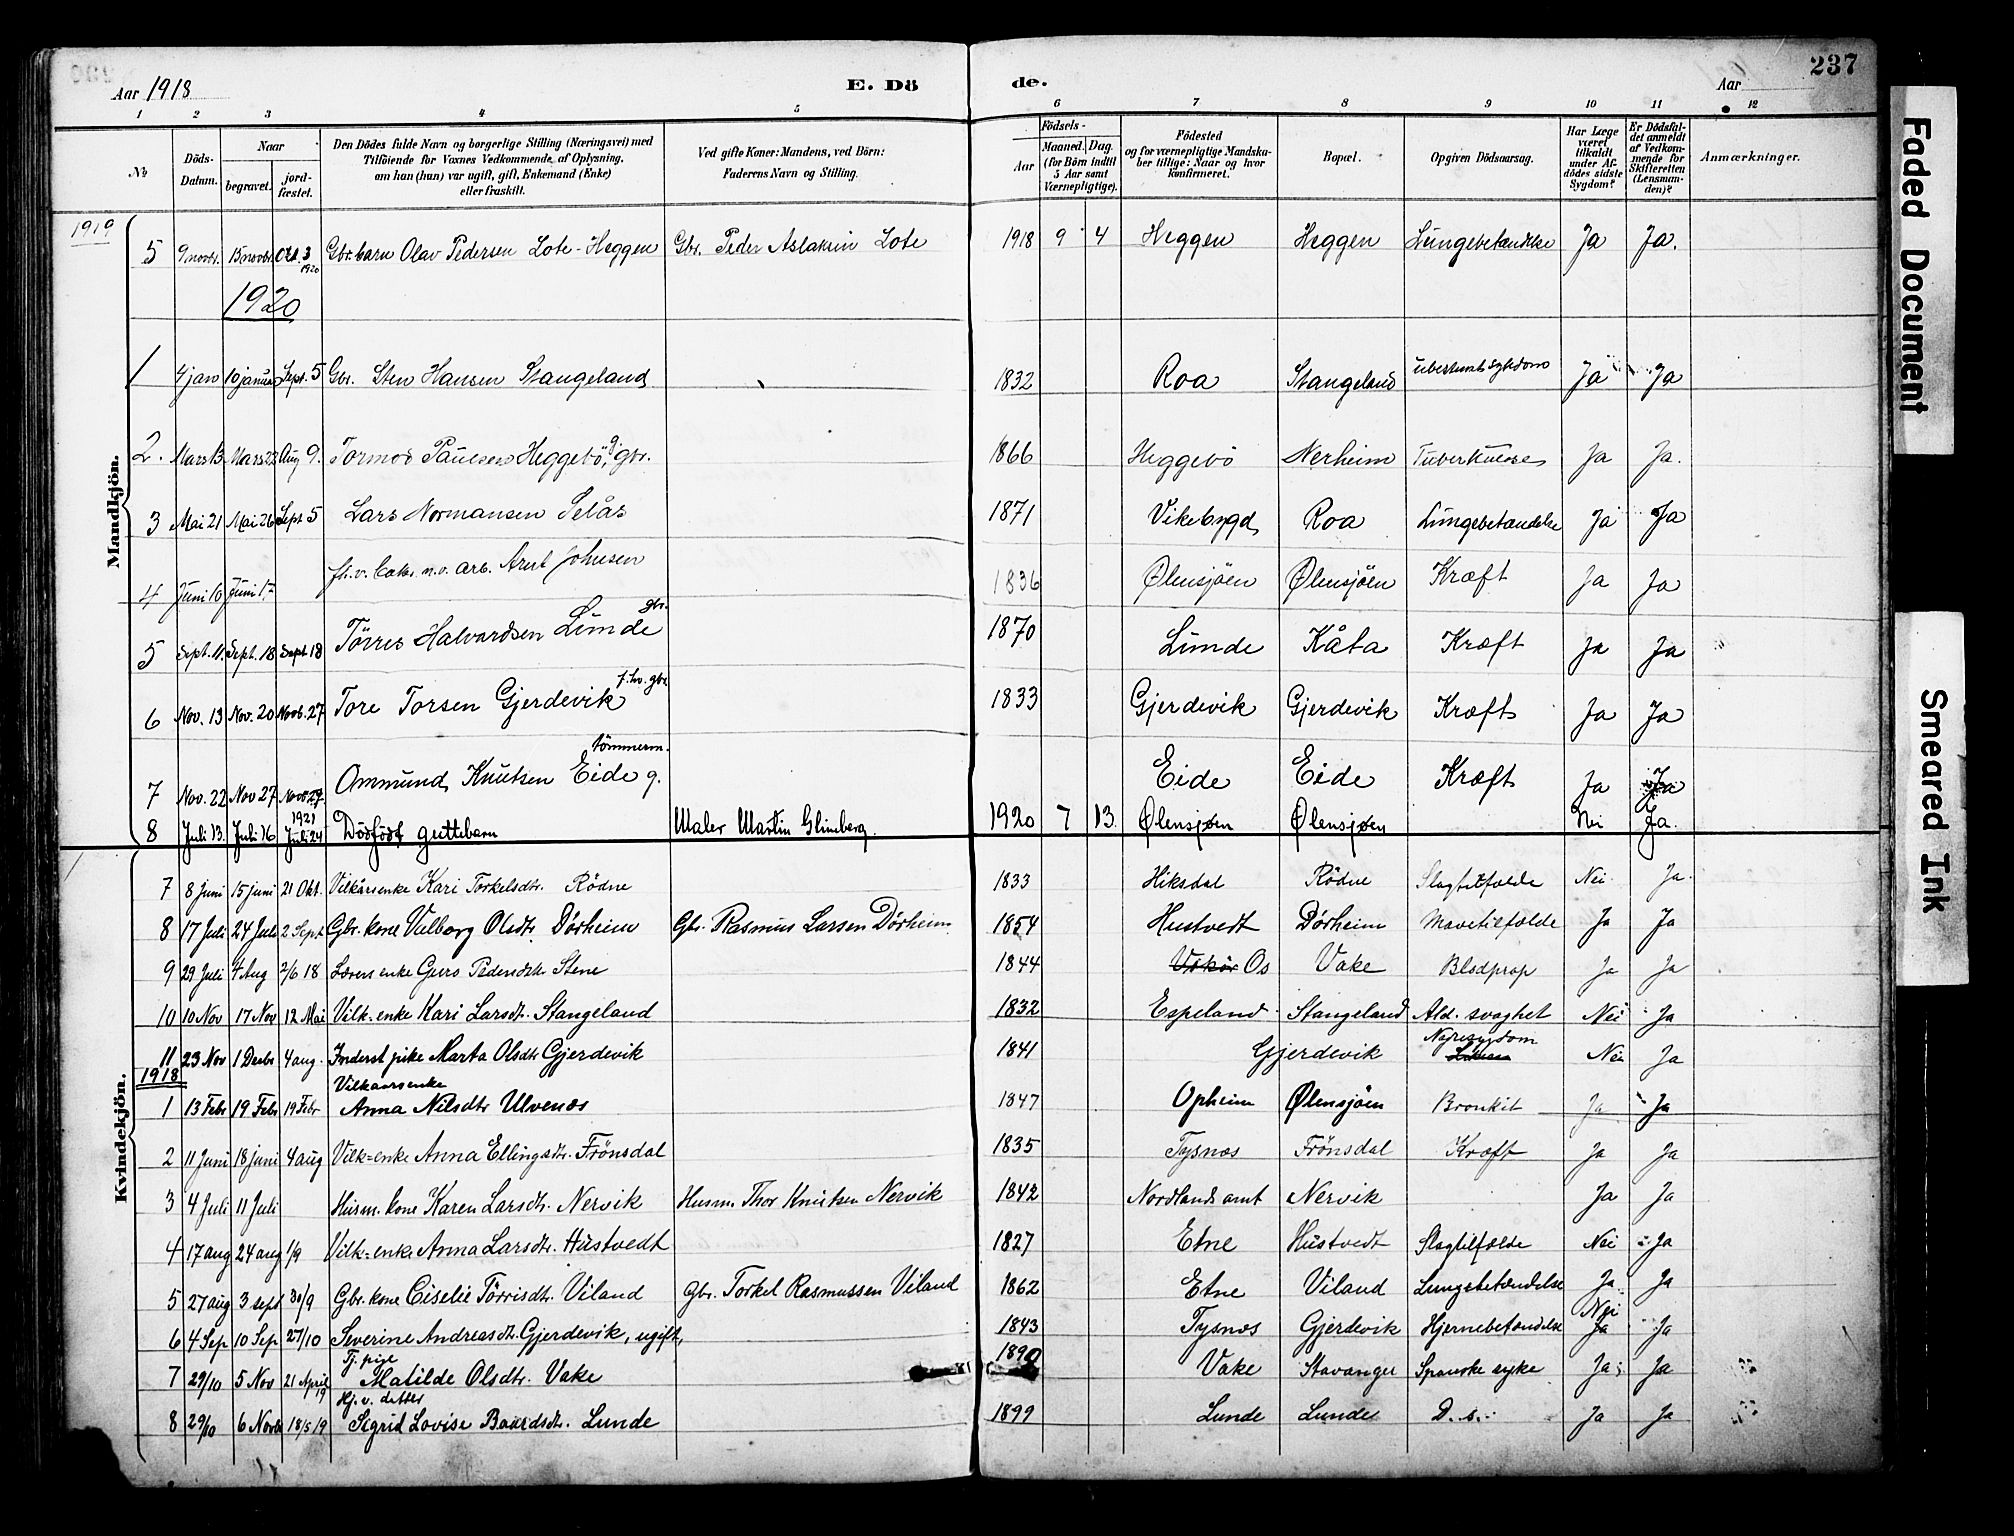 Aar 1918 E. Dö de. Aar 237
1 2 3 4 5 6 7 8 9 10 11 12
No
Döds-Datum.
Naar
begravet.
jord-fæstet.
Den Dödes fulde Navn og borgerlige Stilling (Næringsvei) med
Tilföiende for Voxnes Vedkommende af Oplysning,
om han (hun) var ugift, gift, Enkemand (Enke)
eller fraskilt.
Ved gifte Koner: Mandens, ved Börn:
Faderens Navn og Stilling.
Födsels-
Aar
Maaned. Dag.
(for Börn indtil
5 Aar samt
Værnepligtige).
Födested
og for værnepligtige Mandska-
ber tillige: Naar og hvor
konfirmeret.
Bopæl.
Opgiven Dödsaarsag.
Har Læge
været
tilkaldt
under Af-
dödes sidste
Sygdom?
Er Dödsfal-
det anmeldt
af Vedkom-
mende for
Skifteretten
(Lensman-
den)?
Anmærkninger.
Mandkjön.
1919
5 9 novbr. 15 novbr. Okt. 3 1920 Gbr. barn Olav Pedersen Lote-Heggen Gbr. Peder Aslaksen Lote 1918 9 4 Heggen Heggen Lungebetændelse Ja Ja.
1920
1 4 jan 10 januar Sept. 5 Gbr. Sten Hansen Stangeland 1832 Roa Stangeland Ja Ja
2. Mars 13 Mars 22 Aug 9. Tormod Paulsen Heggebö, g. gbr. 1866 Heggebö Nerheim Tuberkulose Ja Ja.
3 Mai 21 Mai 26 Sept 5 Lars Normansen Selås 1871 Vikebygd Roa Lungebetændelse Ja Ja
4 Juni 10 Juni 17 arb. Arnt Johnsen 1836 Ølensjöen Ølensjöen Kræft Ja Ja
5 Sept. 11. Sept. 18 Sept 18 Törres Halvardsen Lunde gbr. 1870 Lunde Kåta Kræft Ja Ja
6 Nov. 13 Nov. 20 Novb. 27 Tore Torsen Gjerdevik f. hv. gbr. 1833 Gjerdevik Gjerdevik Kræft Ja Ja
7 Nov. 22 Nov 27 Nov. 27 Ommund Knutsen Eide g. tömmerm. Eide Eide Kræft Ja Ja
8 Juli 13. Juli 16 1921 Juli 24 Dödfödt guttebarn Maler Martin Glimberg. 1920 7 13. Ølensjøen Ølensjøen Nei Ja.
Kvindekjön.
7 8 juni 15 juni 21 Okt. Vilkårsenke Kari Torkelsdtr. Rödne 1833 Hiksdal Rödne Slagtilfælde Nei Ja.
8 17 Juli 24 Juli 2 Sept Gbr. kone Valborg Olsdtr. Dörheim Gbr. Rasmus Larsen Dörheim 1854 Hustvedt Dörheim Mavetilfælde Ja Ja
9 29 Juli 4 Aug 2/6 18 Lærers enke Guro Pedersdtr Stene 1844 Os Vake Blodprop Ja Ja
10 10 Nov 17 Nov 12 Mai Vilk.-enke Kari Larsdtr. Stangeland 1832 Espeland Stangeland Ald. svaghet Nei Ja
11 23 Nov 1 Decbr 4 aug. Inderst pike Marta Olsdtr Gjerdevik 1841 Gjerdevik Nyresygdom Nei Ja
1918
1 13 Febr 19 Febr 19 Febr Vilkaarsenke Anna Nilsdtr Ulvenæs 1847 Opheim Ølensjöen Bronkit Ja Ja
2 11 Juni 18 juni 4 aug Vilk=enke Anna Ellingsdtr. Frönsdal 1835 Tysnæs Frönsdal Kræft Ja Ja
3 4 Juli 11 Juli Husm. kone Karen Larsdtr. Nervik Husm. Thor Knutsen Nervik 1842 Nordlands amt Nervik Ja Ja
4 17 aug 24 aug 1/9 Vilk=enke Anna Larsdtr. Hustvedt 1827 Etne Hustvedt Slagtilfælde Nei Ja
5 27 aug 3 sept 30/9 Gbr. kone Ciselie Törrisdtr. Viland Gbr. Torkel Rasmussen Viland 1862 Etne Viland Lungebetændelse Ja Ja
6 4 Sep 10 Sep 27/10 Severine Andreasdtr. Gjerdevik, ugift, 1843 Tysnæs Gjerdevik Hjernebetændelse Nei Ja Ja
7 29/10 5 Nov 21 April 19 Tj. pige Matilde Olsdtr. Vake Vake Stavanger Spanske syke Ja Ja
8 29/10 6 Novb 18/5 19 Hj. v. datter Sigrid Lovise Baardsdtr. Lunde 1899 Lunde Lunde D. s. Ja Ja
Faded Document
Smeared Ink